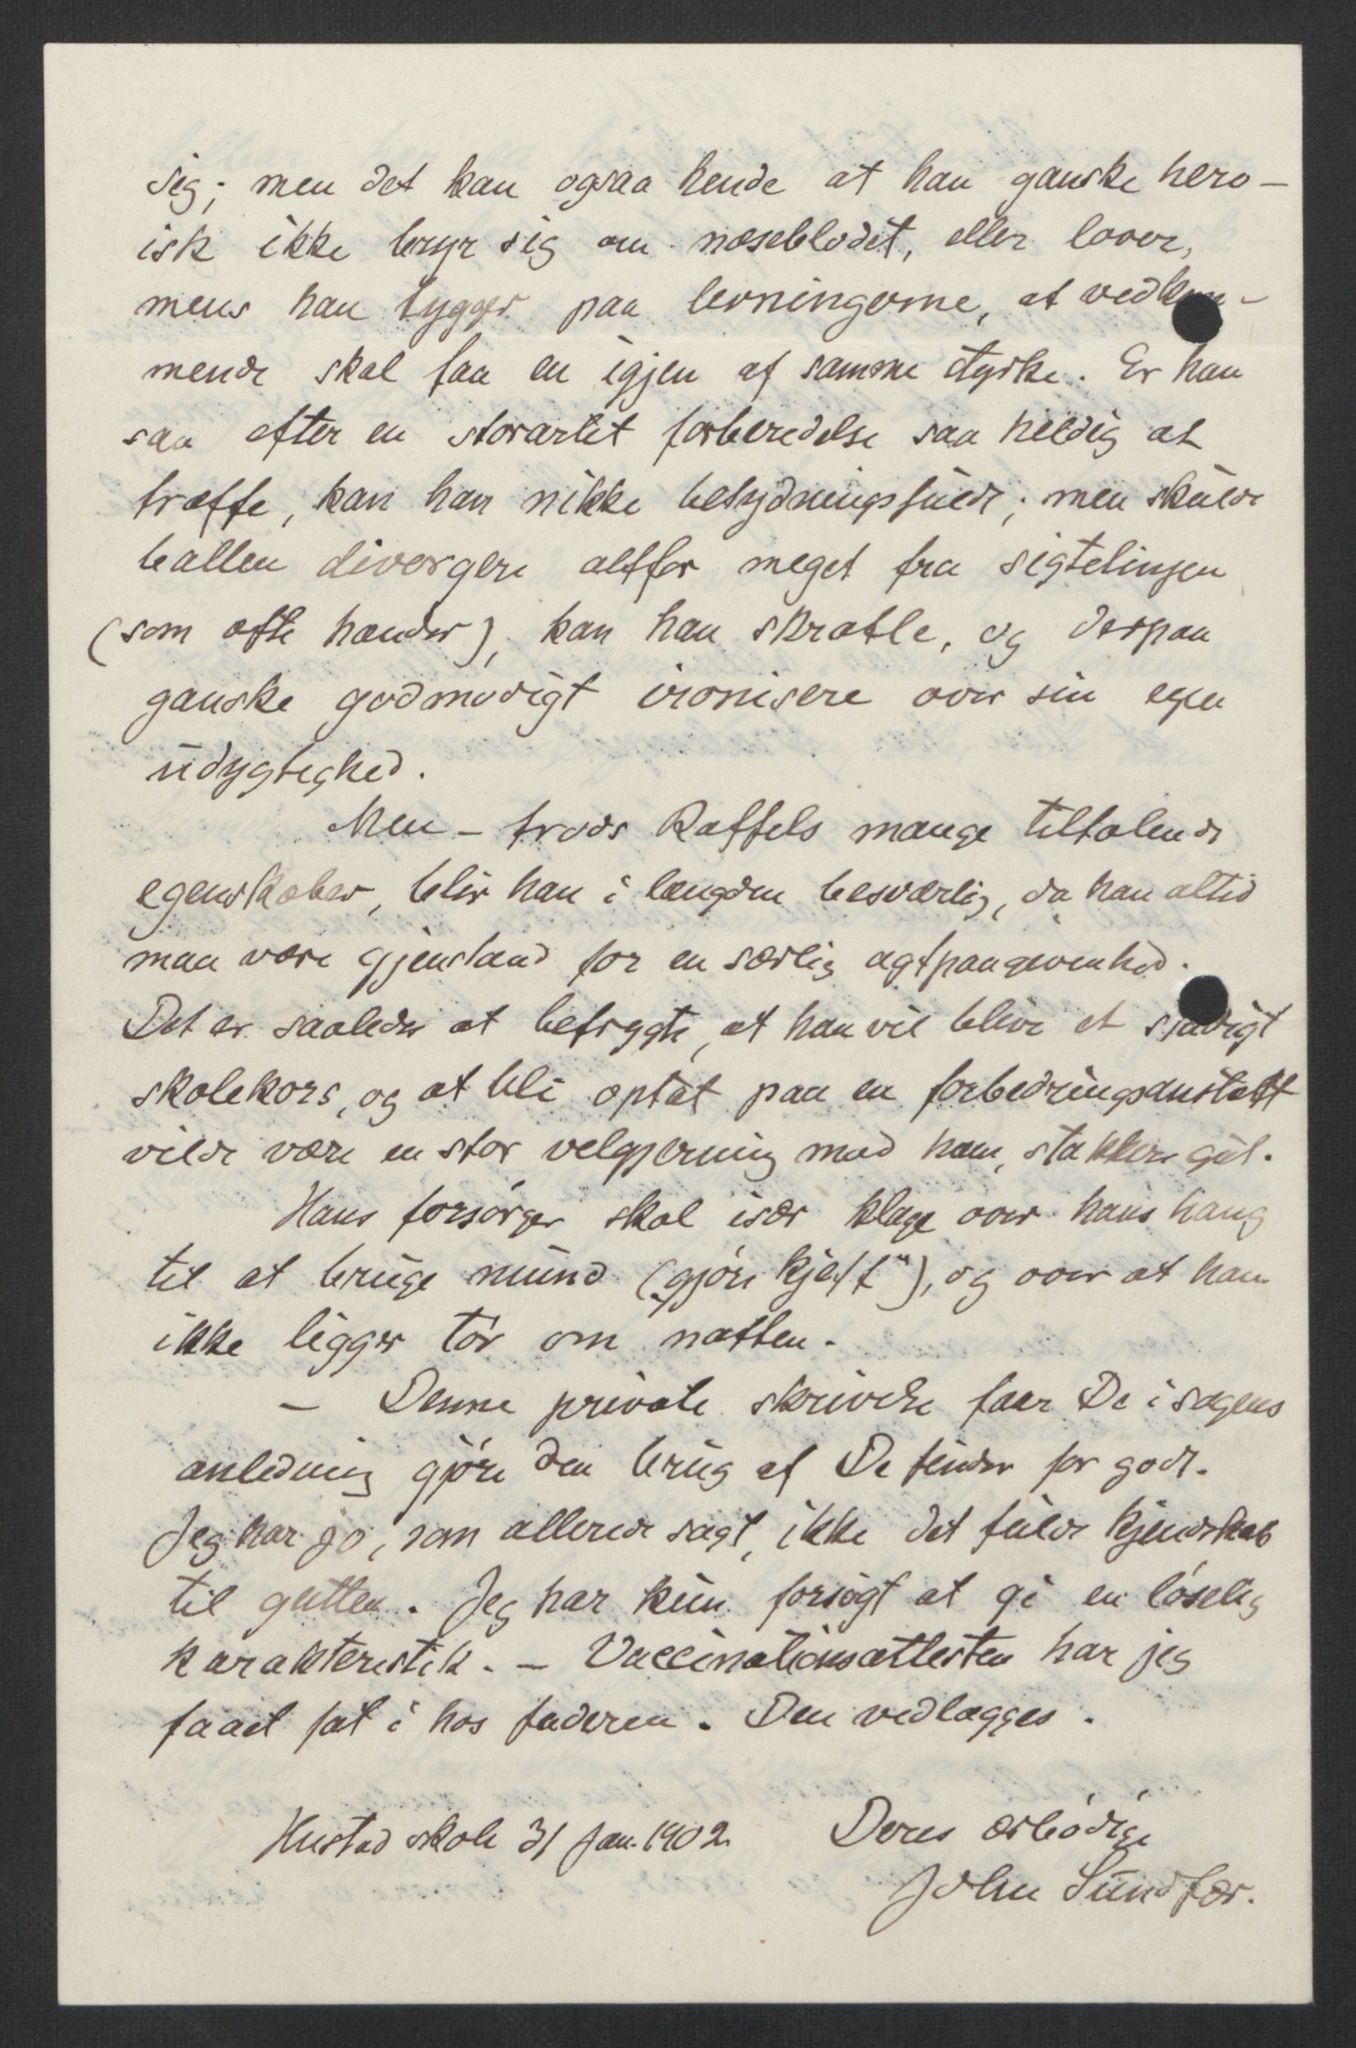 sig; men det kan ogsaa hende at han ganske hero-
isk ikke bryr sig om næseblodet, eller lover,
mens han tygger paa levningerne, at vedkom-
mende skal faa en igjen af samme styrke. Er han
saa efter en storartet forberedelse saa heldig at
træffe, kan han nikke betydningsfuldt; men skulde
ballen divergere altfor meget fra sigtelinjen
(som ofte hænder), kan han skratle, og derpaa
ganske godmodigt ironisere over sin egen
udygtighed.
Men – trods Raffels mange tiltalende
egenskaber, blir han i længden besværlig, da han altid
maa være gjenstand for en særlig agtpaagivenhed.
Det er saaledes at befrygte, at han vil blive et stadigt
skolekors, og at bli optat paa en forbedringsanstalt
vilde være en stor velgjerning mod ham, stakkers gut.
Hans forsörger skal især klage over hans hang
til at bruge mund („gjöre kjæft"), og over at han
ikke ligger tör om natten.
– Denne private skrivelse faar De i sagens
anledning gjöre den brug af De finder for godt.
Jeg har jo, som allerede sagt, ikke det fulde kjendskab
til gutten. Jeg har kun forsögt at gi en löselig
karakteristik. – Vaccinationsattesten har jeg
faaet fat i hos faderen. Den vedlægges.
Hustad skole 31 Jan. 1902. Deres ærbödige
John Sundfær.